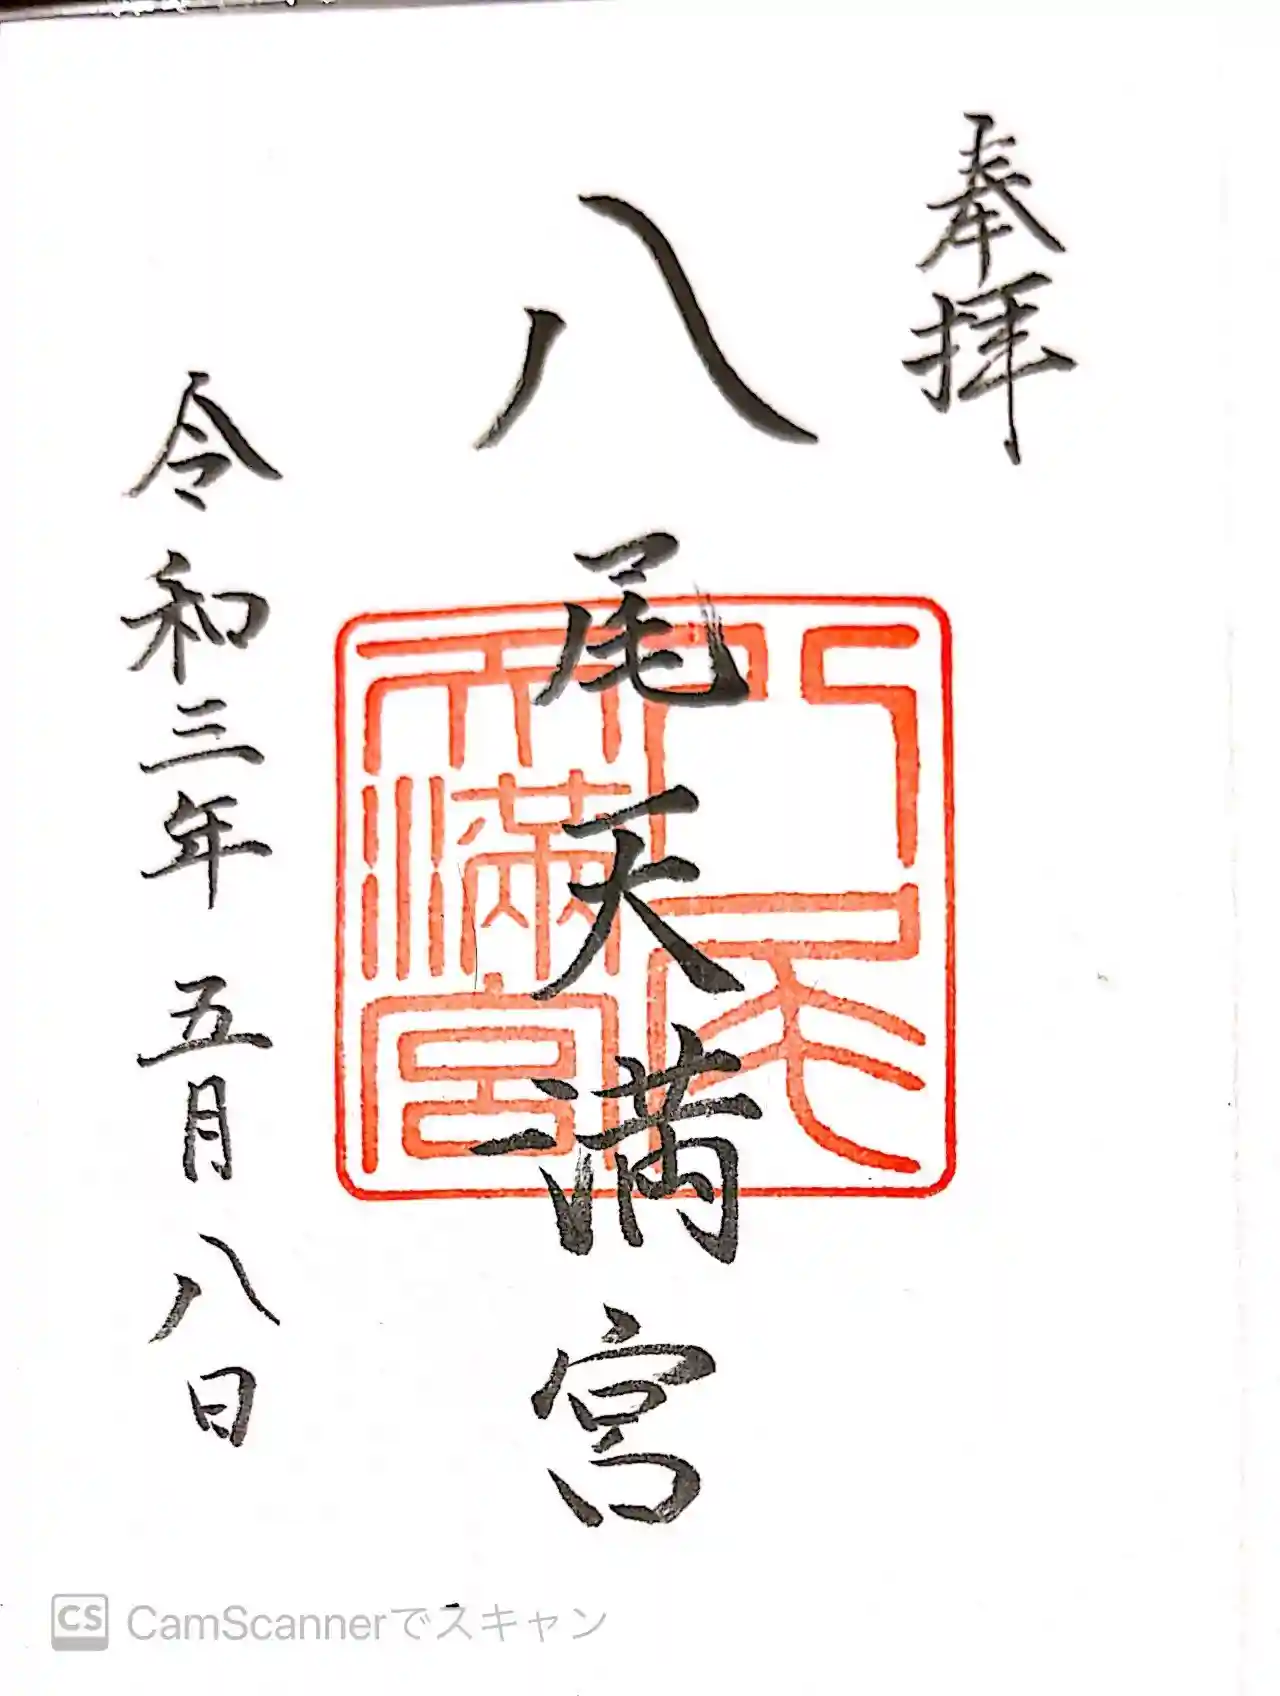 奉拝
八尾天満宮
八尾天満宮
令和三年五月八日
CS CamScannerでスキャン